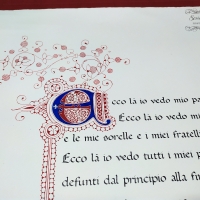 Ecco là io vedo mio pa
e le mie sorelle e i miei fratell
Ecco là io vedo tutti i miei p
defunti dal principio alla fi